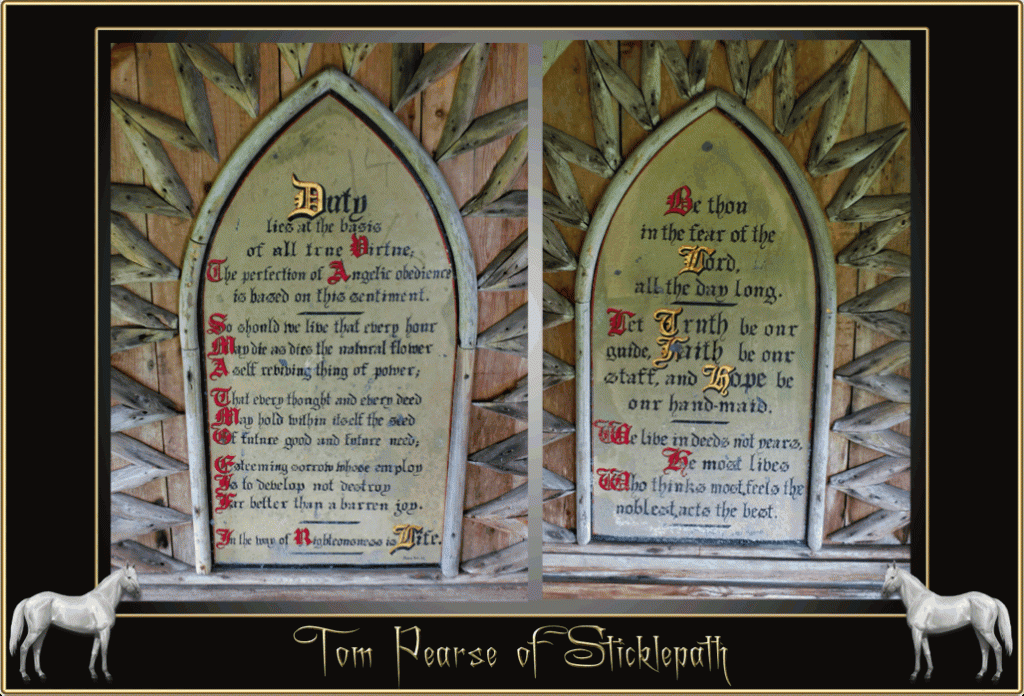 Duty
lies at the basis
of all true Virtue;
The perfection of Angelic obedience
is based on this sentiment.
So should we live that every hour
May die as dies the natural flower
A self reviving thing of power;
That every thought and every deed
May hold within itself the seed
Of future good and future need;
Esteeming sorrow whose employ
Is to develop not destroy
Far better than a barren joy.
In the way of Righteousness is Life.
Be thou
in the fear of the
Lord,
all the day long.
Let Truth be our
guide, Faith be our
staff, and Hope be
our hand-maid.
We live in deeds not years,
He most lives
Who thinks most, feels the
noblest, acts the best.
Tom Pearse of Sticklepath